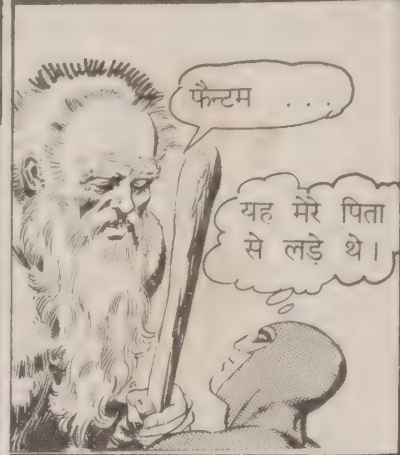 फैन्टम . . .
यह मेरे पिता
से लड़े थे।